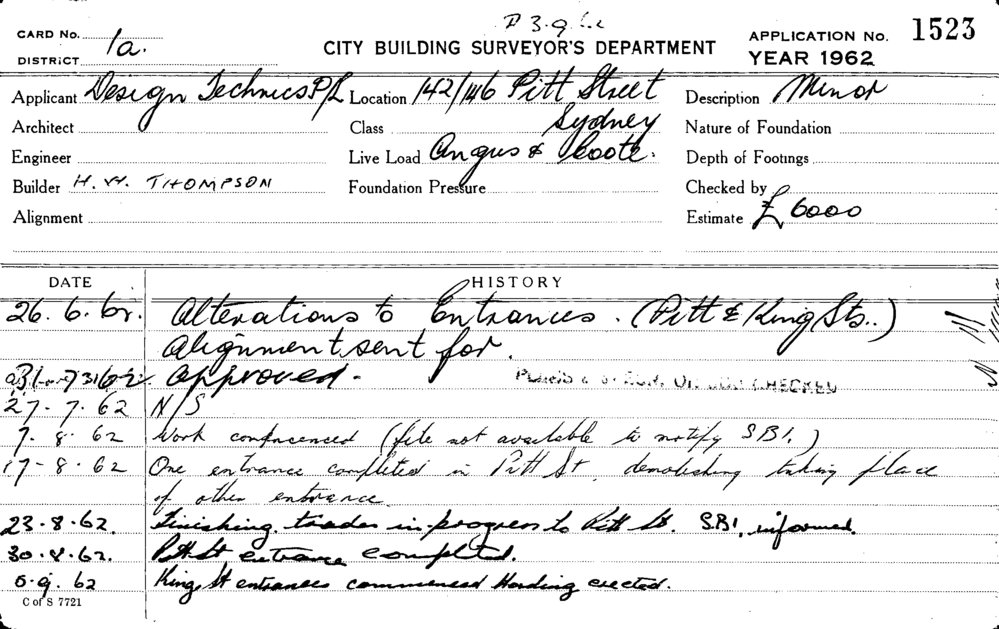 P 3.9.62
CARD No. 1a.
DISTRICT
CITY BUILDING SURVEYOR'S DEPARTMENT
APPLICATION No. 1523
YEAR 1962
Applicant Design Technics P/L Location 142/146 Pitt Street Description Minor
Architect Class Sydney Nature of Foundation
Engineer Live Load Angus & Coote. Depth of Footings
Builder H. W. THOMPSON Foundation Pressure Checked by
Alignment Estimate £ 6000
DATE HISTORY
26.6.62. Alterations to Entrances. (Pitt & King Sts..)
Alignment sent for.
Approved. CHECKED
27-7.62 N/S
7.8.62 Work commenced (file not available to notify SBI.)
17-8.62 One entrance completed in Pitt St, demolishing taking place
of other entrance
23.8.62. Finishing trades in progress to Pitt St. S.B.I. informed.
30.8.62. Pitt St entrance completed.
6.9.62 King St entrances commenced Hording erected.
C of S 7721